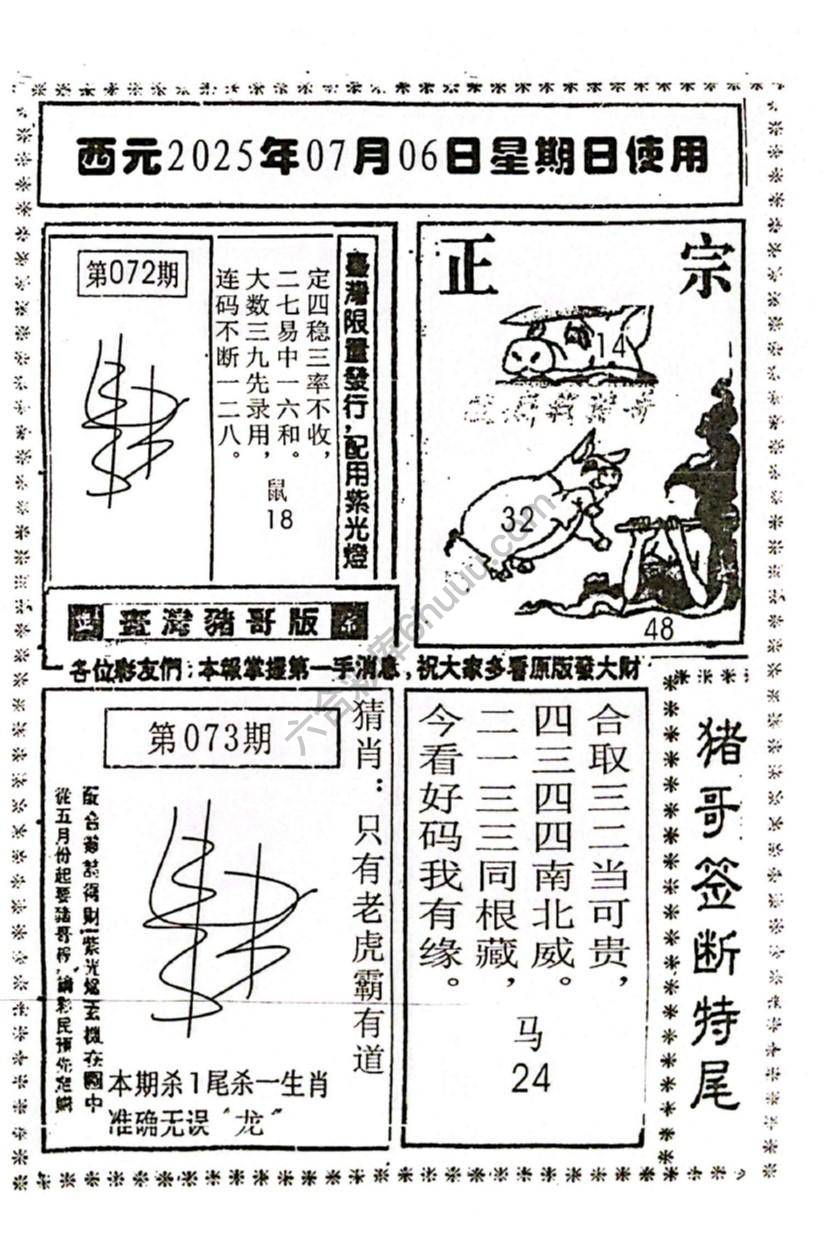 西元2025年07月06日星期日使用
第072期
臺灣限量發行，配用紫光燈
定四稳三率不收，
二七易中一六和。
大数三九先录用，
连码不断一二八。
鼠
18
正宗
14
32
48
臺灣豬哥版
各位彩友們：本報掌握第一手消息，祝大家多看原版發大財
第073期
猜肖：只有老虎霸有道
本期杀1尾杀一生肖
准确无误“龙”
合取三二当可贵，
四三四四南北威。
二一三三同根藏，
今看好码我有缘。
马
24
猪哥签断特尾
六合彩库6huuu.com